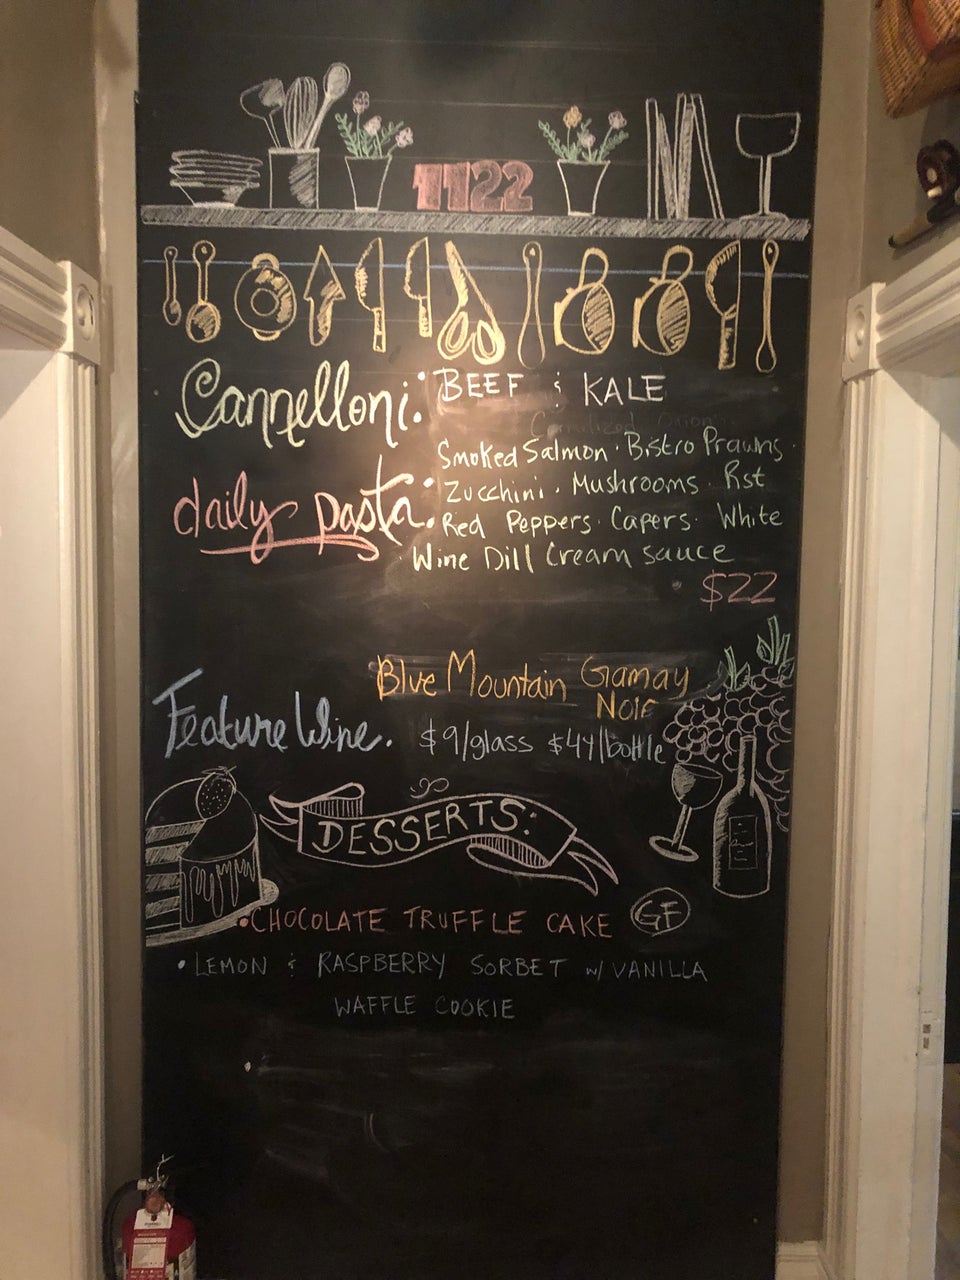 1122
Cannelloni: BEEF & KALE
Caramelized Onion
daily pasta: Smoked Salmon · Bistro Prawns ·
Zucchini · Mushrooms · Rst
Red Peppers · Capers · White
Wine Dill Cream sauce
$22
Blue Mountain Gamay
Noir
Feature Wine. $9/glass $44/bottle
DESSERTS:
• CHOCOLATE TRUFFLE CAKE GF
• LEMON & RASPBERRY SORBET w/ VANILLA
WAFFLE COOKIE